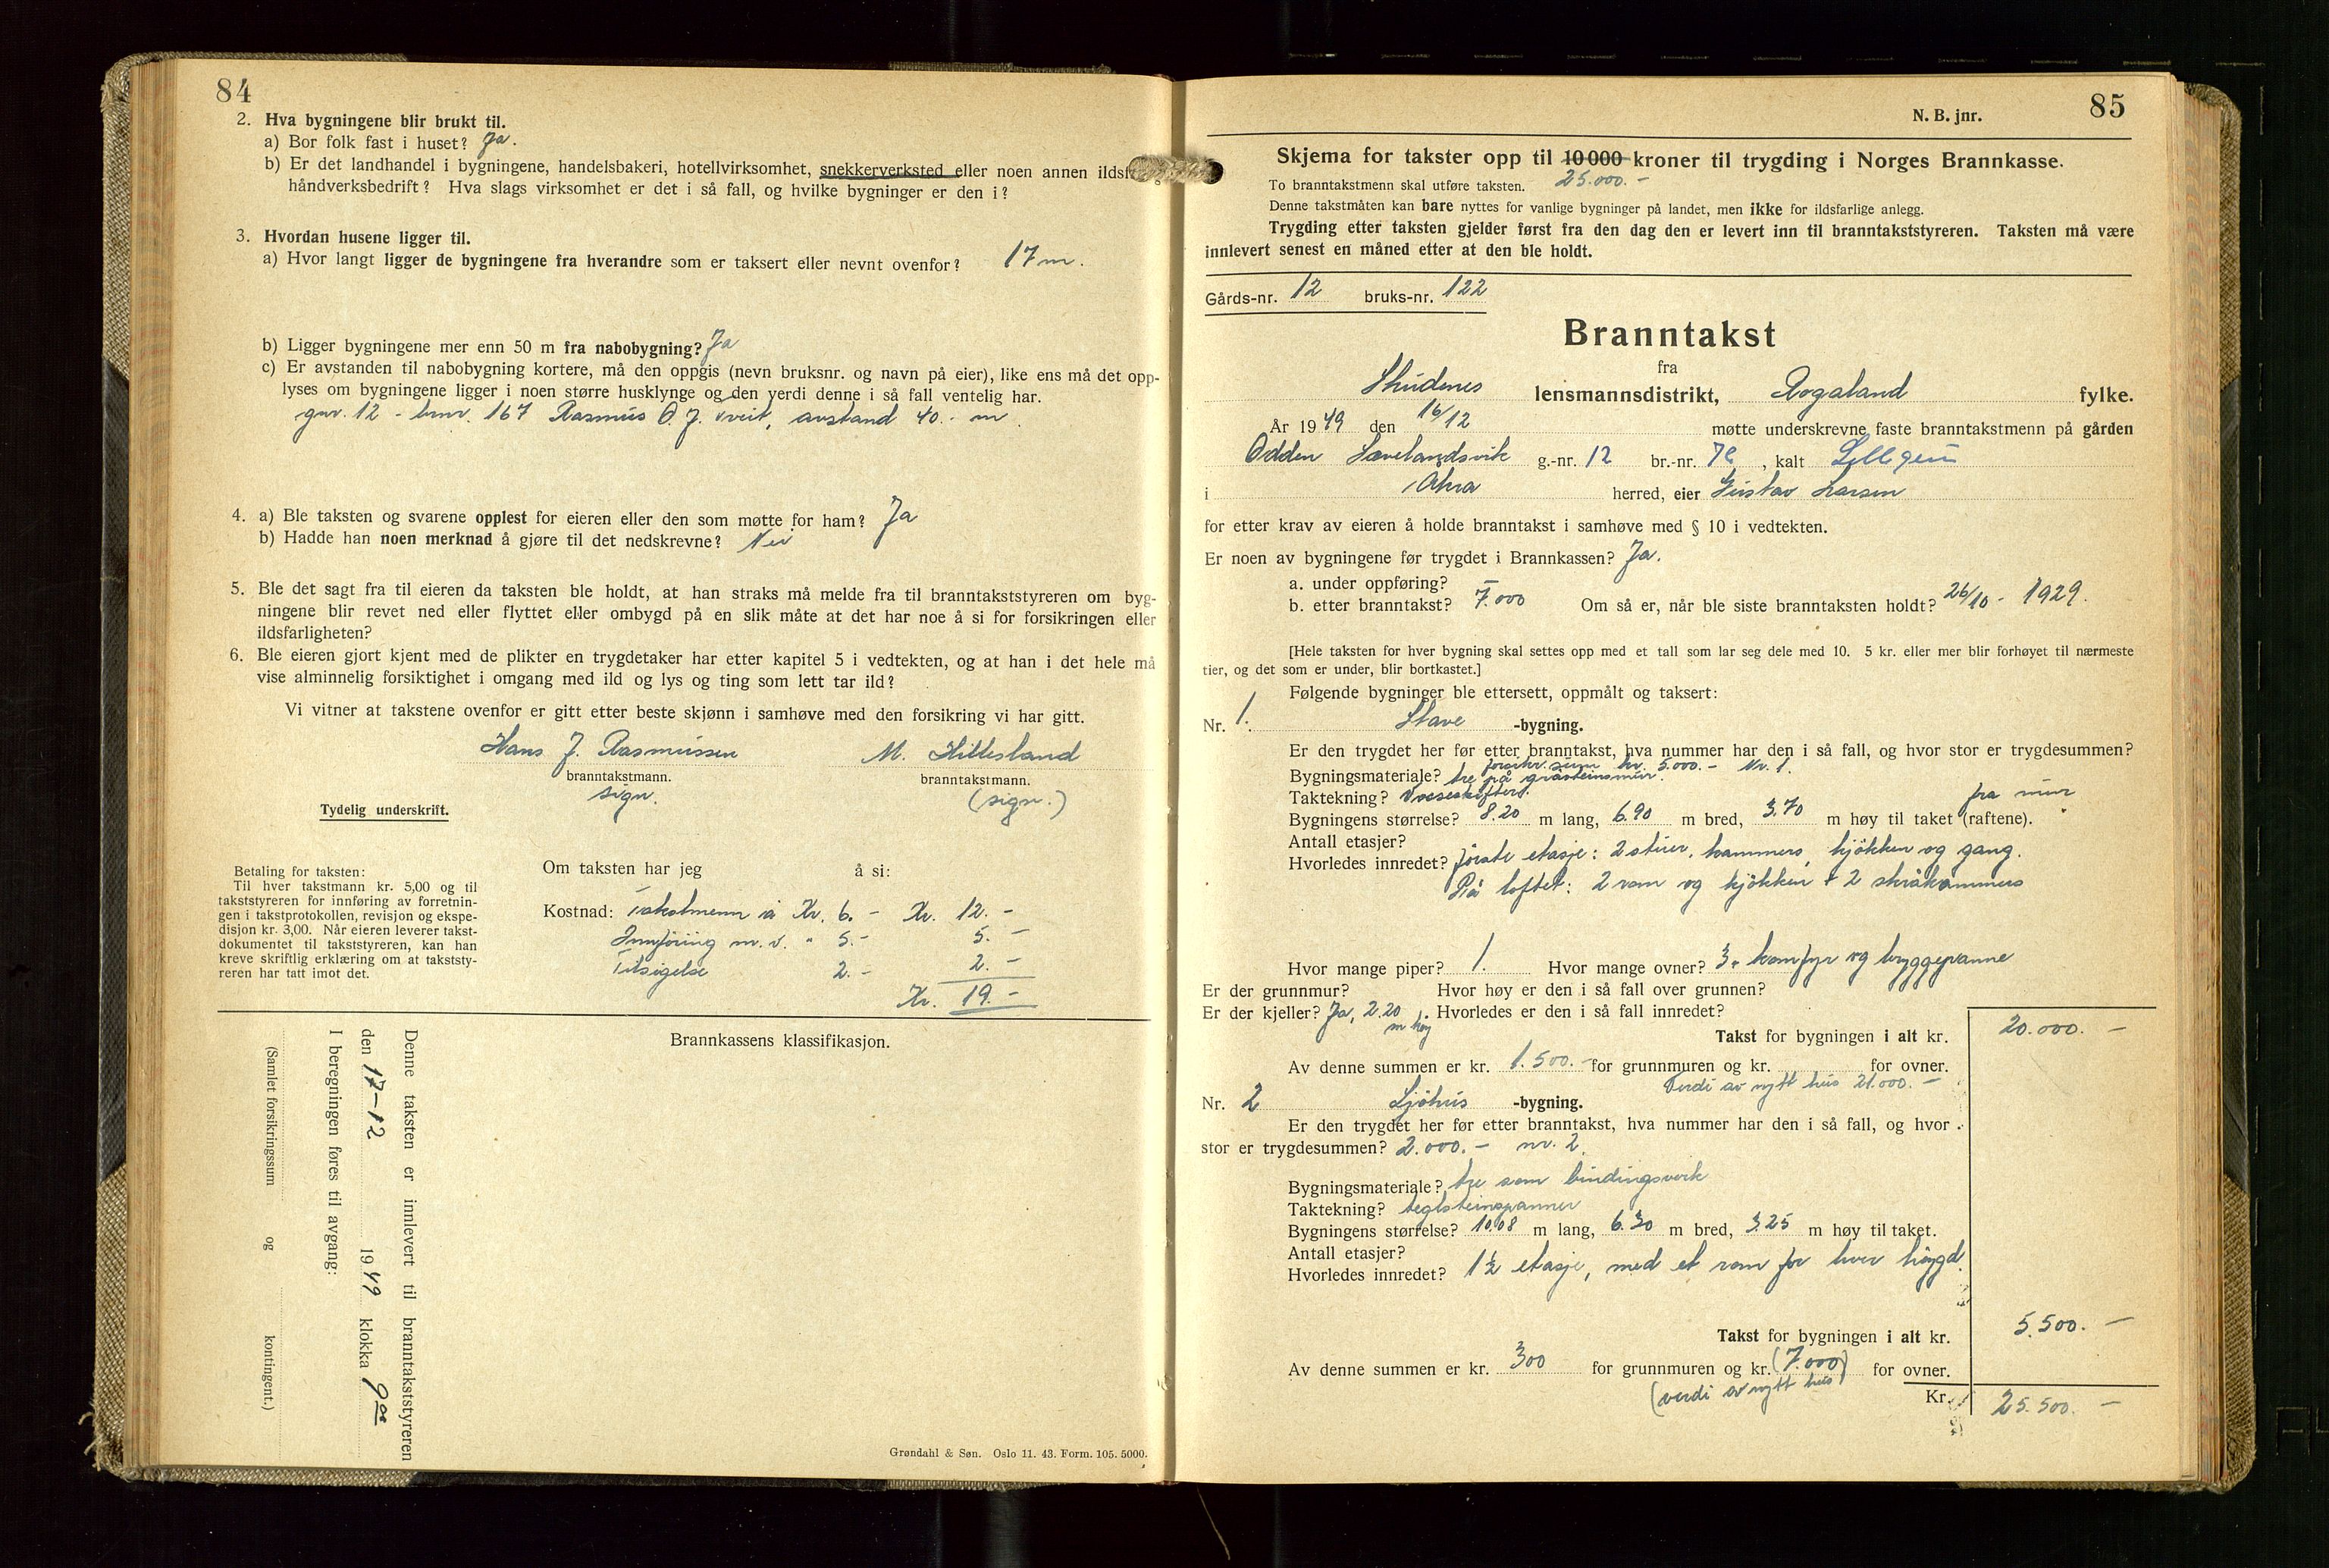 84
2. Hva bygningene blir brukt til.
a) Bor folk fast i huset? Ja.
b) Er det landhandel i bygningene, handelsbakeri, hotellvirksomhet, snekkerverksted eller noen annen
håndverksbedrift? Hva slags virksomhet er det i så fall, og hvilke bygninger er den i?
3. Hvordan husene ligger til.
a) Hvor langt ligger de bygningene fra hverandre som er taksert eller nevnt ovenfor? 17 m.
b) Ligger bygningene mer enn 50 m fra nabobygning? Ja
c) Er avstanden til nabobygning kortere, må den oppgis (nevn bruksnr. og navn på eier), like ens må det opp-
lyses om bygningene ligger i noen større husklynge og den verdi denne i så fall ventelig har.
gnr. 12 - brnr. 167 Rasmus O. J. Kveit, avstand 40.- m.
4. a) Ble taksten og svarene opplest for eieren eller den som møtte for ham? Ja
b) Hadde han noen merknad å gjøre til det nedskrevne? Nei
5. Ble det sagt fra til eieren da taksten ble holdt, at han straks må melde fra til branntakststyreren om byg-
ningene blir revet ned eller flyttet eller ombygd på en slik måte at det har noe å si for forsikringen eller
ildsfarligheten?
6. Ble eieren gjort kjent med de plikter en trygdetaker har etter kapitel 5 i vedtekten, og at han i det hele må
vise alminnelig forsiktighet i omgang med ild og lys og ting som lett tar ild?
Vi vitner at takstene ovenfor er gitt etter beste skjønn i samhøve med den forsikring vi har gitt.
Hans J. Rasmussen M. Hillesland
branntakstmann. branntakstmann.
sign. (sign.)
Tydelig underskrift.
Betaling for taksten:
Til hver takstmann kr. 5,00 og til
takststyreren for innføring av forretnin-
gen i takstprotokollen, revisjon og ekspe-
disjon kr. 3,00. Når eieren leverer takst-
dokumentet til takststyreren, kan han
kreve skriftlig erklæring om at takststy-
reren har tatt imot det.
Om taksten har jeg å si:
Kostnad: Takstmenn à Kr. 6.- Kr. 12.-
Innföring m.v. " 5.- 5.-
Tilsigelse 2.- 2.-
Kr. 19.-
Brannkassens klassifikasjon.
Denne taksten er innlevert til branntakststyreren
den 17-12 1949 klokka 9
I beregningen føres til avgang:
(Samlet forsikringssum og kontingent.)
Grøndahl & Søn. Oslo 11. 43. Form. 105. 5000.
85
N. B. jnr.
Skjema for takster opp til 10 000 kroner til trygding i Norges Brannkasse.
25.000.-
To branntakstmenn skal utføre taksten.
Denne takstmåten kan bare nyttes for vanlige bygninger på landet, men ikke for ildsfarlige anlegg.
Trygding etter taksten gjelder først fra den dag den er levert inn til branntakststyreren. Taksten må være
innlevert senest en måned etter at den ble holdt.
Gårds-nr. 12 bruks-nr. 122
Branntakst
fra
Skudenes lensmannsdistrikt, Rogaland fylke.
År 1949 den 16/12 møtte underskrevne faste branntakstmenn på gården
Odden Sævelandsvik g.-nr. 12 br.-nr. 78, kalt
i Åkra herred, eier Gustav Larsen
for etter krav av eieren å holde branntakst i samhøve med § 10 i vedtekten.
Er noen av bygningene før trygdet i Brannkassen? Ja.
a. under oppføring?
b. etter branntakst? 7.000 Om så er, når ble siste branntaksten holdt? 26/10 - 1929.
[Hele taksten for hver bygning skal settes opp med et tall som lar seg dele med 10. 5 kr. eller mer blir forhøyet til nærmeste
tier, og det som er under, blir bortkastet.]
Følgende bygninger ble ettersett, oppmålt og taksert:
Nr. 1. Stove -bygning.
Er den trygdet her før etter branntakst, hva nummer har den i så fall, og hvor stor er trygdesummen?
forsikr. sum kr. 5.000.- Nr. 1.
Bygningsmateriale? tre på gråsteinsmur.
Taktekning?
Bygningens størrelse? 8.20 m lang, 6.90 m bred, 3.70 m høy til taket (raftene). fra mur
Antall etasjer?
Hvorledes innredet? förste etasje: 2 stuer, kammers, kjökken og gang.
På loftet: 2 rom og kjökken + 2 skråkammers
Hvor mange piper? 1. Hvor mange ovner? 3. komfyr og bryggepanne
Er der grunnmur? Hvor høy er den i så fall over grunnen?
Er der kjeller? Ja, 2.20 m höy. Hvorledes er den i så fall innredet?
Takst for bygningen i alt kr. 20.000.-
Av denne summen er kr. 1.500.- for grunnmuren og kr. for ovner.
Verdi av nytt hus 21.000.-
Nr. 2 Sjöhus -bygning.
Er den trygdet her før etter branntakst, hva nummer har den i så fall, og hvor
stor er trygdesummen? 2.000.- nr. 2.
Bygningsmateriale? tre som bindingsverk
Taktekning? teglsteinspanner
Bygningens størrelse? 10.08 m lang, 6.30 m bred, 3.25 m høy til taket.
Antall etasjer?
Hvorledes innredet? 1½ etasje, med et rom for hver höygd.
Takst for bygningen i alt kr. 5.500.-
Av denne summen er kr. 300 for grunnmuren og kr. (7.000) for ovner.
(verdi av nytt hus)
Kr. 25.500.-